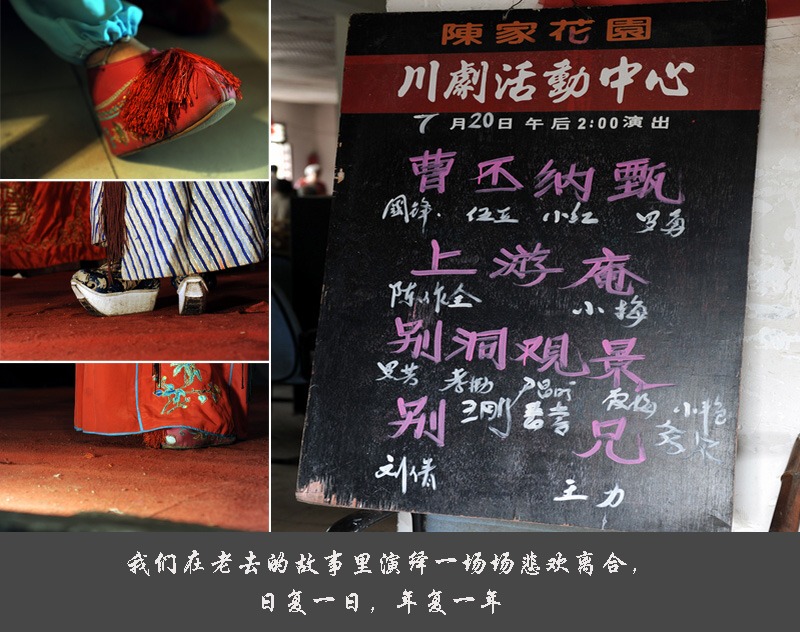 陳家花園
川劇活動中心
7月20日午后2:00演出
曹丕纳甄
國锋. 伍立 小红 罗勇
上游庵
陈作全 小梅
别洞观景
别兄
王刚
刘倩
王力
我们在老去的故事里演绎一场场悲欢离合，
日复一日，年复一年